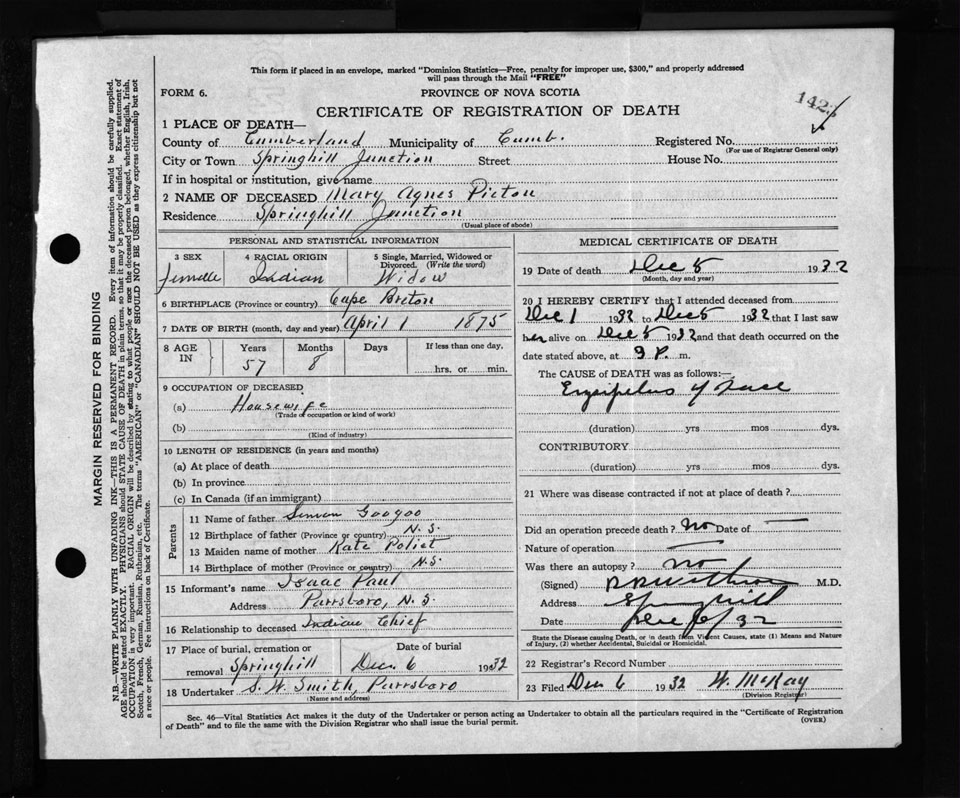 This form if placed in an envelope, marked "Dominion Statistics—Free, penalty for improper use, $300," and properly addressed
will pass through the Mail "FREE"
FORM 6.
PROVINCE OF NOVA SCOTIA
CERTIFICATE OF REGISTRATION OF DEATH
1 PLACE OF DEATH—
County of Cumberland Municipality of Cumb. Registered No.
(For use of Registrar General only)
City or Town Springhill Junction Street House No.
If in hospital or institution, give name
2 NAME OF DECEASED Mary Agnes Picton
Residence Springhill Junction
(Usual place of abode)
PERSONAL AND STATISTICAL INFORMATION
3 SEX 4 RACIAL ORIGIN 5 Single, Married, Widowed or
Divorced. (Write the word)
female Indian Widow
6 BIRTHPLACE (Province or country) Cape Breton
7 DATE OF BIRTH (month, day and year) April 1 1875
8 AGE IN Years Months Days If less than one day,
57 8 hrs. or min.
9 OCCUPATION OF DECEASED
(a) Housewife
(Trade or occupation or kind of work)
(b)
(Kind of industry)
10 LENGTH OF RESIDENCE (in years and months)
(a) At place of death
(b) In province
(c) In Canada (if an immigrant)
Parents
11 Name of father Simon Googoo
12 Birthplace of father (Province or country) N. S.
13 Maiden name of mother Kate Poliet
14 Birthplace of mother (Province or country) N.S.
15 Informant's name Isaac Paul
Address Parrsboro, N. S.
16 Relationship to deceased Indian Chief
17 Place of burial, cremation or Date of burial
removal Springhill Dec. 6 1932
18 Undertaker S. W. Smith, Parrsboro
(Name and address)
MEDICAL CERTIFICATE OF DEATH
19 Date of death Dec 5 1932
(Month, day and year)
20 I HEREBY CERTIFY that I attended deceased from
Dec 1 1932 to Dec 5 1932 that I last saw
her alive on Dec 5 1932 and that death occurred on the
date stated above, at 9 P. m.
The CAUSE of DEATH was as follows:—
Erysipelas of face
(duration) yrs mos dys.
CONTRIBUTORY
(duration) yrs mos dys.
21 Where was disease contracted if not at place of death ?
Did an operation precede death ? No Date of —
Nature of operation —
Was there an autopsy ? no
(Signed) M.D.
Address Springhill
Date Dec 6/32
State the Disease causing Death, or in death from Violent Causes, state (1) Means and Nature
of Injury, (2) whether Accidental, Suicidal or Homicidal.
22 Registrar's Record Number
23 Filed Dec 6 1932 W. McKay
(Division Registrar)
Sec. 46—Vital Statistics Act makes it the duty of the Undertaker or person acting as Undertaker to obtain all the particulars required in the "Certificate of Registration
of Death" and to file the same with the Division Registrar who shall issue the burial permit. (OVER)
MARGIN RESERVED FOR BINDING
N.B.—WRITE PLAINLY WITH UNFADING INK—THIS IS A PERMANENT RECORD. Every item of information should be carefully supplied.
AGE should be stated EXACTLY. PHYSICIANS should STATE CAUSE OF DEATH in plain terms, so that it may be properly classified. Exact statement of
OCCUPATION is very important. RACIAL ORIGIN will be described by stating to what people or race the deceased person belonged, whether English, Irish,
Scotch, French, German, Russian, Ruthenian, etc. The terms "AMERICAN" or "CANADIAN" SHOULD NOT BE USED as they express citizenship but not
a race or people. See instructions on back of Certificate.